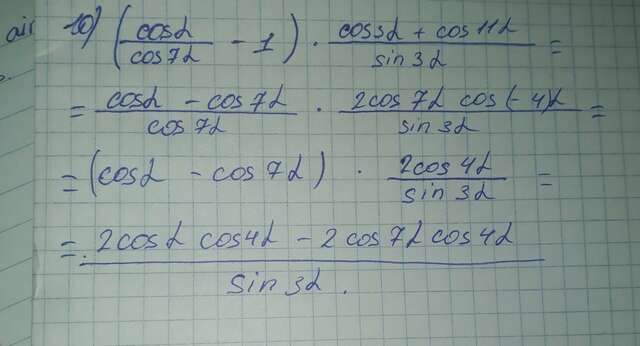 air 10) (cosα/cos7α - 1) · (cos3α + cos11α)/sin3α =
= (cosα - cos7α)/cos7α · (2cos7α cos(-4)α)/sin3α =
= (cosα - cos7α) · 2cos4α/sin3α =
= (2cosα cos4α - 2cos7α cos4α)/sin3α.